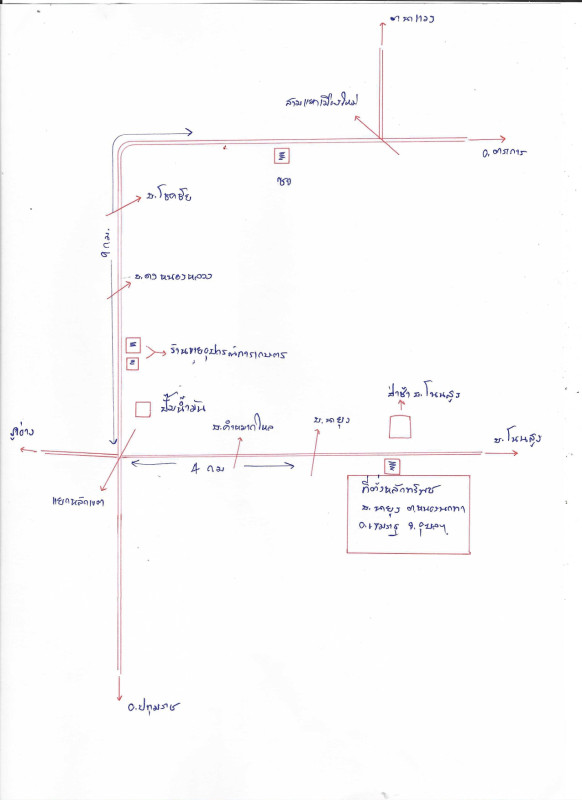 ตาดทอง
สามแยกเมืองใหม่
อ.ตระการ
อบต
บ.โชคชัย
9 กม.
บ.ดงหนองหลวง
ร้านขายอุปกรณ์การเกษตร
ปั๊มน้ำมัน
ป่าช้า บ.โนนสูง
บ.คำหมากไหล
บ.นายูง
บ.โนนสูง
4 กม
แยกหลักเขต
ที่ตั้งหลักทรัพย์
บ.นายูง ต.หนองนกทา
อ.เขมราฐ จ.อุบลฯ
อ.ปทุมราช